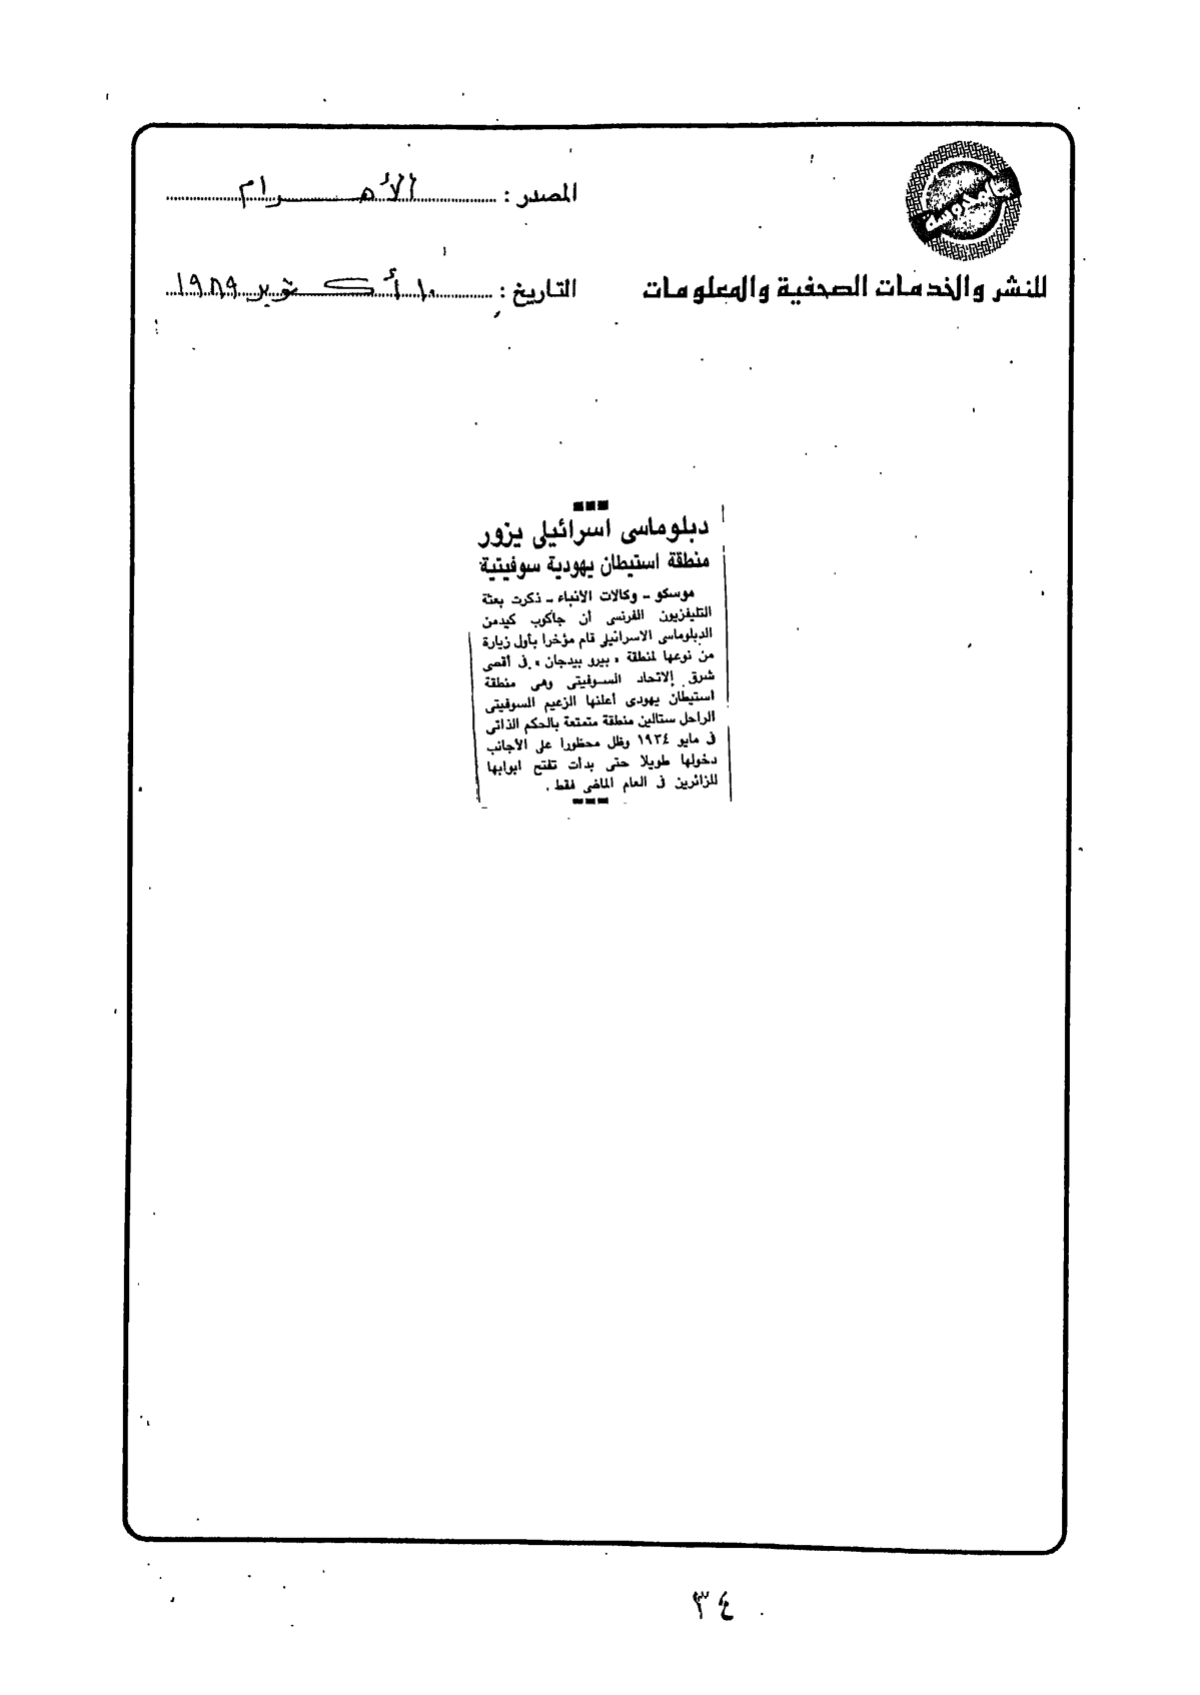 المصدر : الأهرام
للنشر والخدمات الصحفية والمعلومات
التاريخ : ١٠ أكتوبر ١٩٨٩
دبلوماسى اسرائيلى يزور
منطقة استيطان يهودية سوفيتية
موسكو ـ وكالات الأنباء ـ ذكرت بعثة
التليفزيون الفرنسى أن جاكوب كيدمن
الدبلوماسى الاسرائيلى قام مؤخرا بأول زيارة
من نوعها لمنطقة « بيرو بيدجان » فى أقصى
شرق الاتحاد السوفيتى وهى منطقة
استيطان يهودى أعلنها الزعيم السوفيتى
الراحل ستالين منطقة متمتعة بالحكم الذاتى
فى مايو ١٩٣٤ وظل محظورا على الأجانب
دخولها طويلا حتى بدأت تفتح ابوابها
للزائرين فى العام الماضى فقط .
٣٤